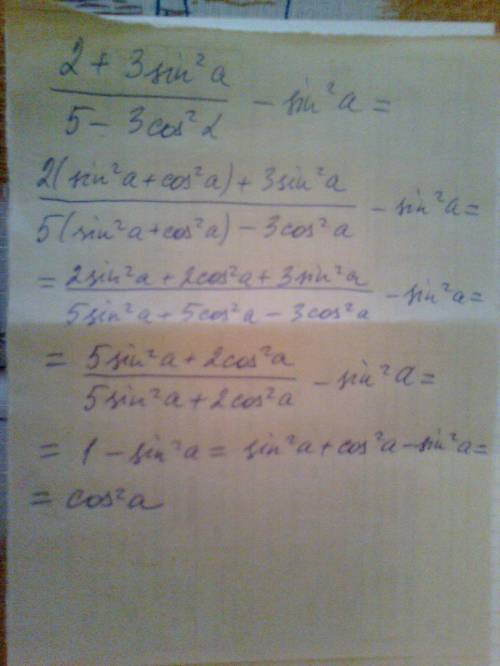 2 + 3sin²a
5 - 3cos²α - sin²a =
2(sin²a+cos²a)+3sin²a
5(sin²a+cos²a)-3cos²a - sin²a=
= 2sin²a+2cos²a+3sin²a
5sin²a+5cos²a-3cos²a - sin²a=
= 5sin²a+2cos²a
5sin²a+2cos²a - sin²a=
= 1-sin²a = sin²a+cos²a-sin²a=
= cos²a